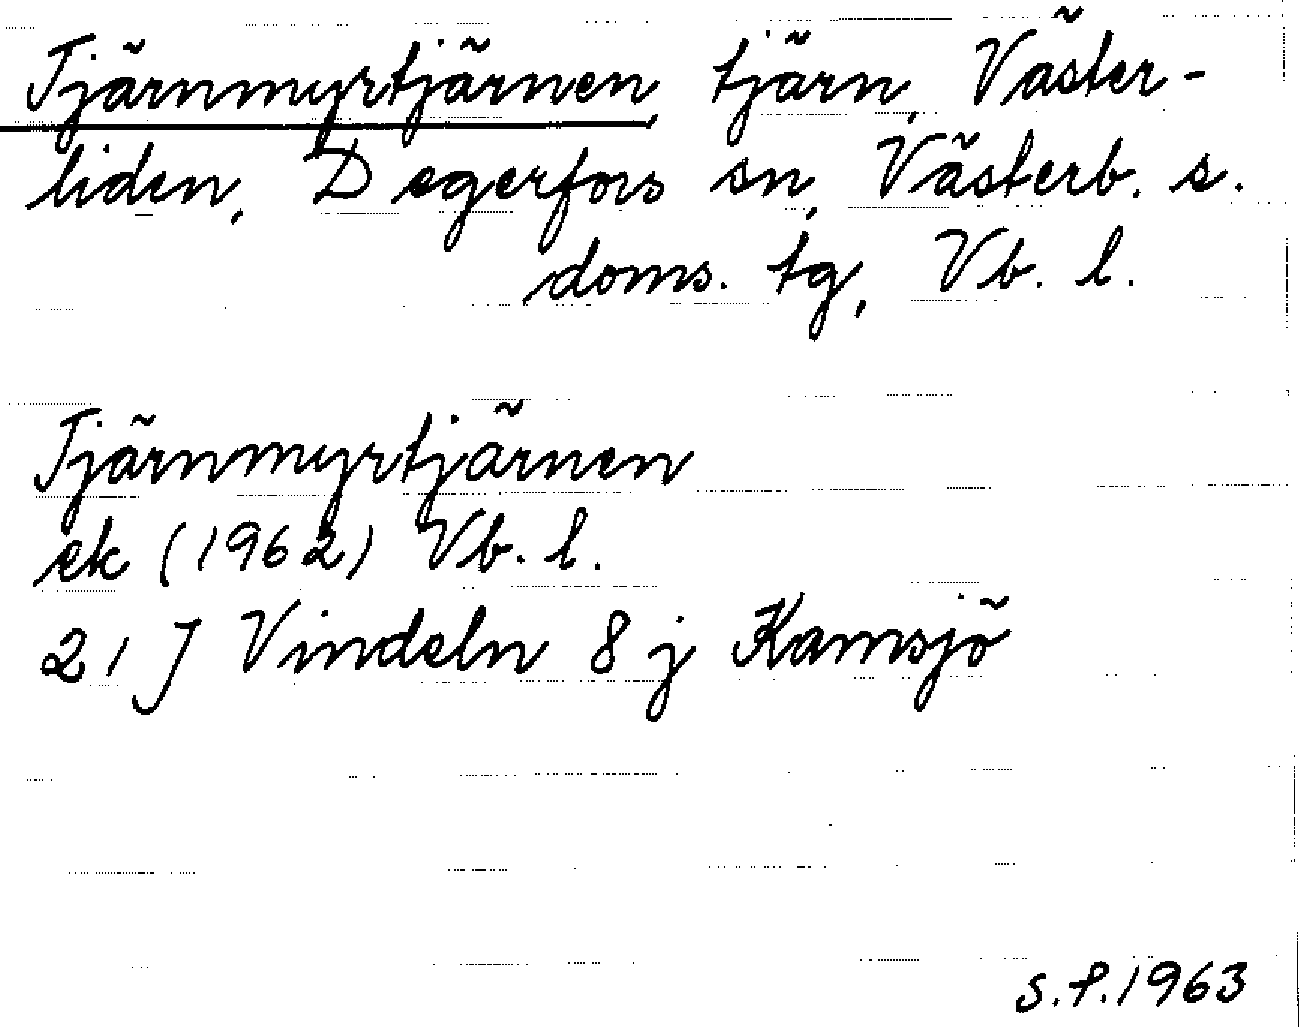 Tjärnmyrtjärnen, tjärn, Väster-
liden, Degerfors sn, Västerb. s.
doms. tg, Vb. l.
Tjärnmyrtjärnen
ek (1962) Vb. l.
21 J Vindeln 8 j Kamsjö
S.P. 1963